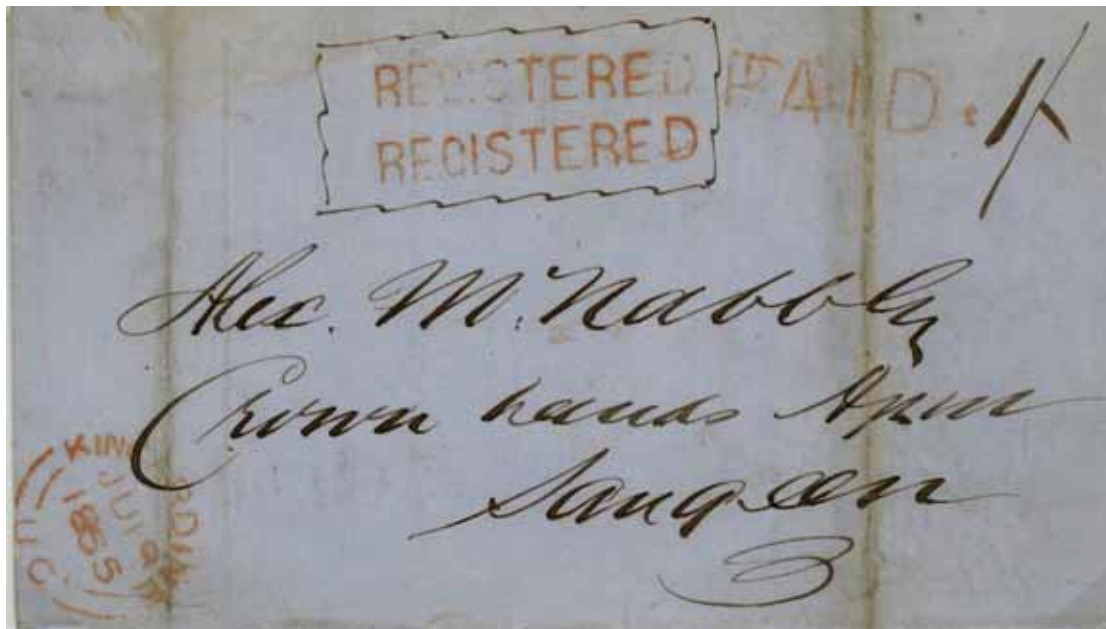 REGISTERED PAID. 1/
REGISTERED
Alex. McNabb Esq
Crown Lands Agent
Saugeen
KINCARDINE
JUL
1855
U.C